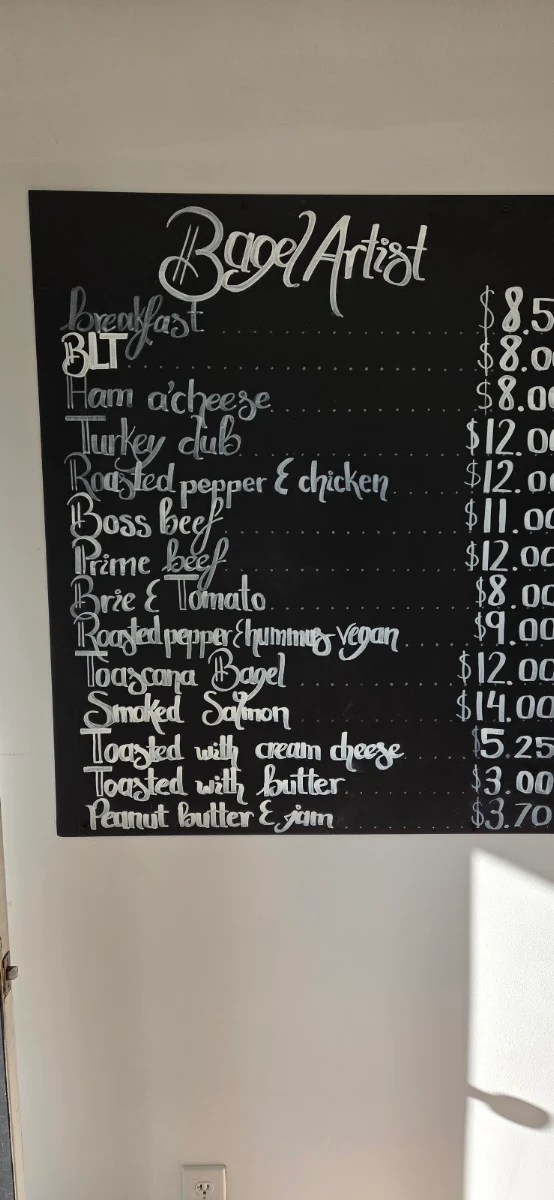 Bagel Artist
breakfast $8.5
BLT $8.00
Ham a'cheese $8.00
Turkey club $12.00
Roasted pepper & chicken $12.00
Boss beef $11.00
Prime beef $12.00
Brie & Tomato $8.00
Roasted pepper & hummus vegan $9.00
Toascana Bagel $12.00
Smoked Salmon $14.00
Toasted with cream cheese $5.25
Toasted with butter $3.00
Peanut butter & jam $3.70